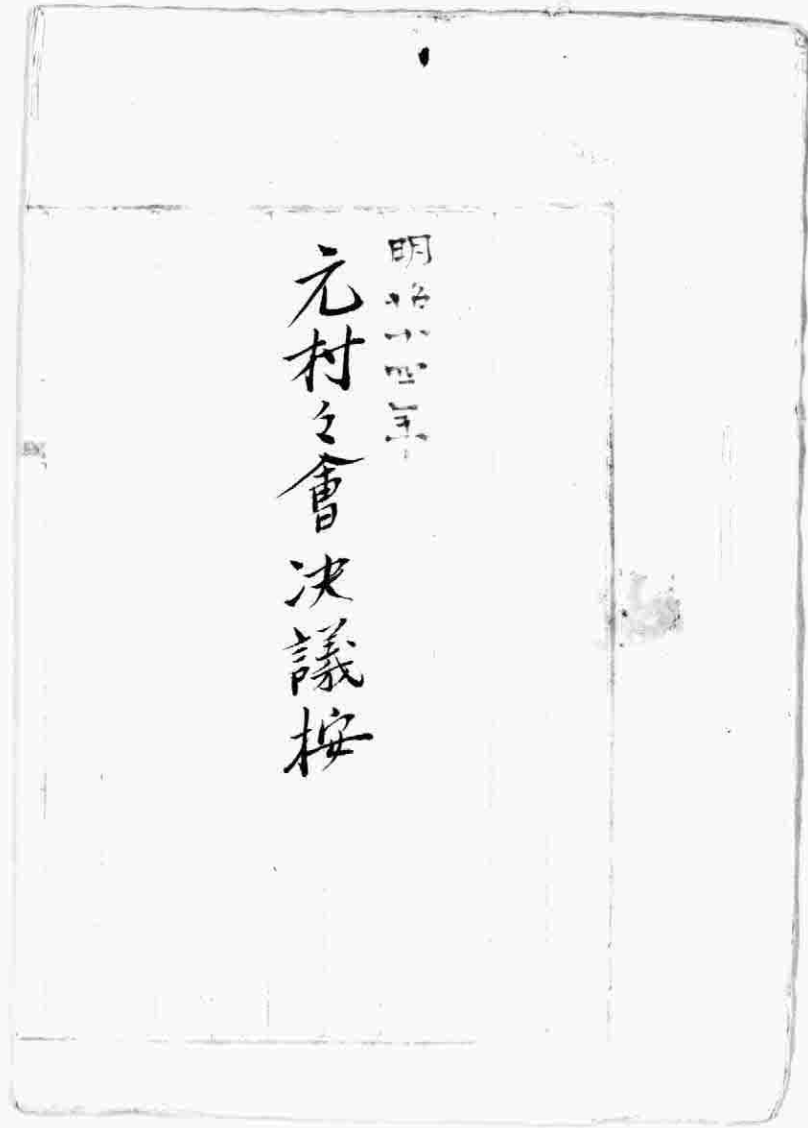 明治十四年
元村々會决議按